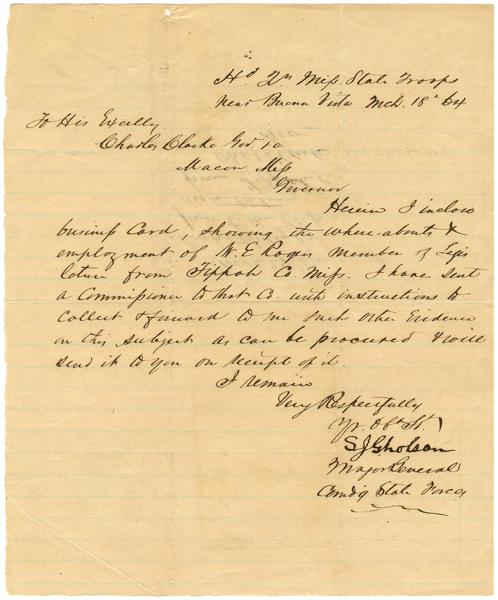 Hd Qrs Miss. State Troops
Near Buena Vista Mch. 18th 64
To His Excelly
Charles Clarke Gov &c
Macon Miss
Governor
Herein I inclose
business Card, showing the where-abouts &
employment of N. E. Roger member of Legis
lature from Tippah Co. Miss. I have sent
a Commissioner to that Co. with instructions to
collect & forward to me such other Evidence
on this subject as can be procured & will
send it to you on receipt of it.
I remain
Very Respectfully
Yr. Obt St.
S J Gholson
Major General
Comdg State Forces